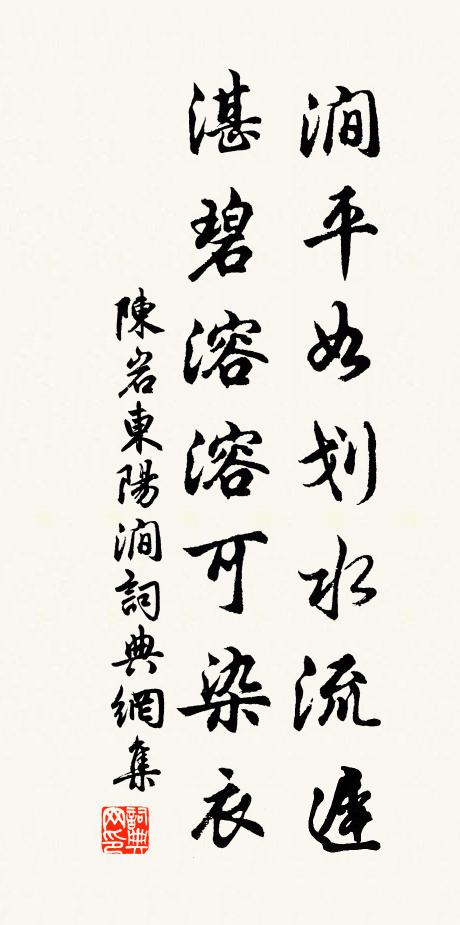 澗平如划水流遲
湛碧溶溶可染衣
陳岩東陽澗詞典網集
詞典網印